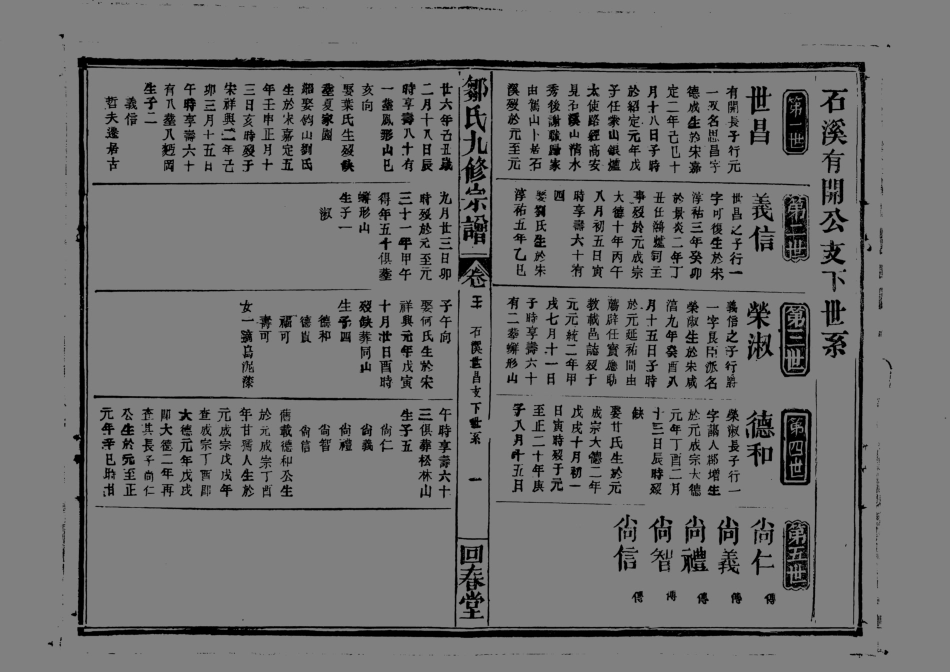 石溪有開公支下世系
第一世
世昌
有開長子行元
一又名思昌字
德成生於宋嘉
定二年己巳十
月十八日子時
於紹定元年戊
子任袁山銀爐
太使路經高安
見石溪山清水
秀後謝職歸家
由篤山卜居石
溪歿於元至元
廿六年己丑歲
二月十八日辰
時享壽八十有
一葬鳳形山巳
亥向
娶葉氏生歿缺
葬夏家園
繼娶鈞山劉氏
生於宋嘉定五
年壬申正月十
三日亥時歿于
宋祥興二年己
卯三月十五日
午時享壽六十
有八葬八麵岡
生子二
義信
哲夫遷居古
第二世
義信
世昌之子行一
字可復生於宋
淳祐三年癸卯
於景炎二年丁
丑任鷀爐司主
事歿於元成宗
大德十年丙午
八月初五日寅
時享壽六十有
四
娶劉氏生於宋
淳祐五年乙巳
九月廿三日卯
時歿於元至元
三十一年甲午
得年五十俱葬
蠏形山
生子一
淑
第三世
榮淑
義信之子行爵
一字長臣派名
榮淑生於宋咸
淳九年癸酉八
月十五日子時
於元延祐間由
薦辟任寶慶助
教載邑誌歿于
元元統二年甲
戌七月十一日
子時享壽六十
有二葬蠏形山
子午向
娶何氏生於宋
祥興元年戊寅
十月廿日酉時
歿缺葬同山
生子四
德和
德眞
福可
壽可
女一適葛泥藻
第四世
德和
榮淑長子行一
字謁人郡增生
於元成宗大德
元年丁酉二月
十三日辰時歿
缺
娶甘氏生於元
成宗大德二年
戊戌十月初一
日寅時歿于元
至正二十年庚
子八月十五日
午時享壽六十
三俱葬松林山
生子五
尙仁
尙義
尙禮
尙智
尙信
舊載德和公生
於元成宗丁酉
年甘孺人生於
元成宗戊戌年
查成宗丁酉卽
大德元年戊戌
卽大德二年再
查其長子尙仁
公生於元至正
元年辛巳
第五世
尙仁 傳
尙義 傳
尙禮 傳
尙智 傳
尙信 傳
鄒氏九修宗譜
卷 石溪世昌支下世系 一
回春堂